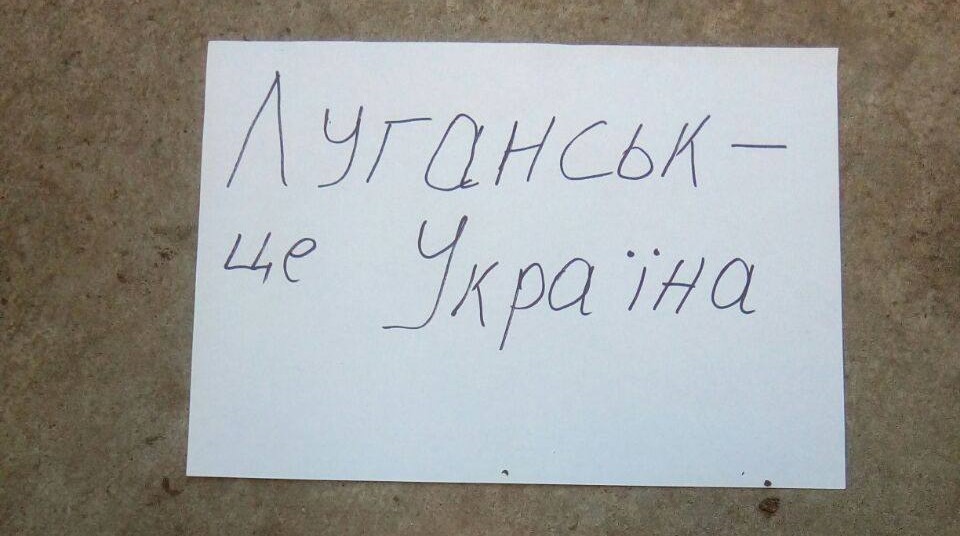 Луганськ –
це Україна